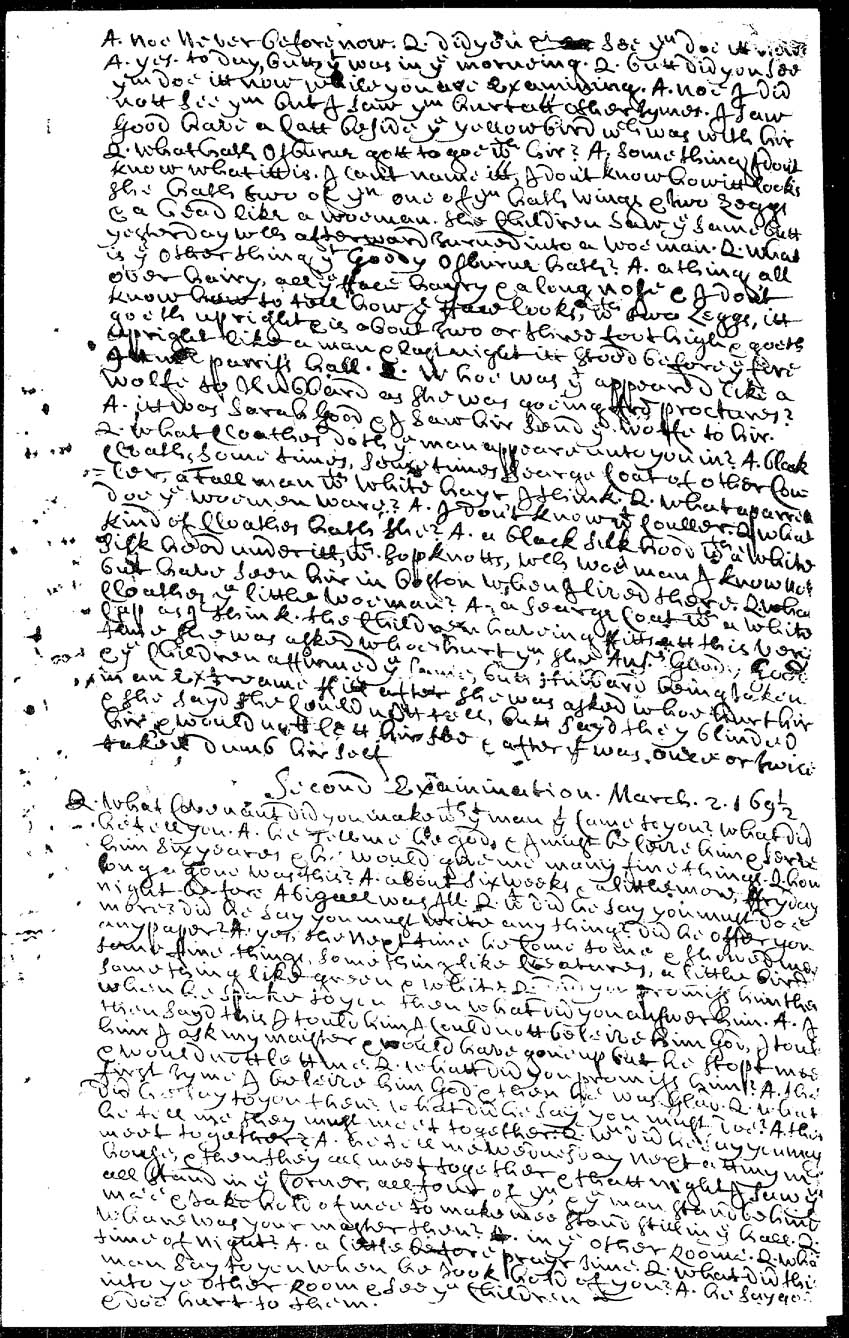 A. noe Never before now. Q. did you See yᵐ doe itt now
A. yes. to day, butt yᵗ was in yᵉ morneing. Q. butt did you See
yᵐ doe itt now while you are Examining. A. noe I did
nott See yᵐ but I saw yᵐ hurt att other tymes. I saw
Good have a Catt beside yᵉ yellow bird wᶜʰ was with hir
Q. what hath Osburne gott to goe wᵗʰ hir? A. Something I dont
know what itt is. I cant name itt, I dont know how itt looks
She hath two of yᵐ one of yᵐ hath wings & two Leggs
& a head like a woeman. the Children Saw yᵉ Same butt
yesterday wᶜʰ afterward turned into a woeman. Q. what
is yᵉ other thing yᵗ Goody Osburne hath? A. a thing all
over hairy, all yᵉ face hairy & a long nose & I dont
know how to tell how yᵉ face looks, wᵗʰ two Leggs, itt
goeth upright & is about two or three foot high & goeth
upright like a man & last night itt stood before yᵉ fire
In mʳ parris's hall. Q. Whoe was yᵗ appeared like a
Wolfe to Hubbard as she was goeing from proctures?
A. itt was Sarah Good & I saw hir Send yᵉ wolfe to hir.
Q. what Cloathes doth yᵉ man appeare unto you in? A. black
Cloaths Some times, Some times Searge Coat of other Cou=
=ler, a Tall man wᵗʰ white hayr I think. Q. what aparrill
doe yᵉ woemen ware? A. I dont know yᵉ couller. Q. what
kind of Cloathes hath she? A. a black Silk hood wᵗʰ a white
Silk hood under itt, wᵗʰ top knotts, wᶜʰ woeman I know not
but have Seen hir in boston when I lived there. Q. what
Cloathes yᵉ little woeman? A. a Searge Coat wᵗʰ a white
Cap as I think. the Children having fits att this very
time she was asked whoe hurt yᵐ, she Ansʳ Goody Good
& yᵉ Children affirmed yᵉ same, butt Hubbard being taken
in an Extreame fit after she was asked whoe hurt hir
& she Sayd she Could nott tell, butt Sayd they blinded
hir, & would nott lett hir See & after yᵗ was once or twice
taken dumb hir self
Second Examination. March. 2. 169½
Q. What Covenant did you make wᵗʰ yᵗ man yᵗ Came to you? what did
he tell you. A. he Tell me he god, & I must beleive him & Serve
him Six yeares & he would give me many fine things. Q. how
long a gone was this? A. about Six weeks & a little more, fryday
night before Abigall was Ill. Q. wᵗ did he Say you must doe
more? did he Say you must Write any thing? did he offer you
any paper? A. yes, the Next time he Come to me & showed me
some fine things, Something like Creatures, a little bird
Something like green & white. Q. did you promiss him then
when he spake to you then what did you answer him. A. I
then Sayd this I tould him I Could nott beleive him God, I tould
him I ask my maister & would have gone up but he stopt mee
& would nott lett me. Q. whatt did you promiss him? A. the
first tyme I beleive him God & then he was Glad. Q. what
did he Say to you then? what did he Say you must doe? A. this
he tell me they must meet together. Q. wⁿ did he Say you must
meet together? A. he tell me wednesday next att my mʳˢ
house, & then they all meet together & thatt night I saw yᵐ
all Stand in yᵉ Corner, all four of yᵐ, & yᵉ man stand behind
mee & take hold of mee to make mee stand still in yᵉ hall. Q.
whare was your master then? A. in yᵉ other Roome. Q. what
time of Night? A. a little before prayr time. Q. what did this
man Say to you when he took hold of you? A. he Say goe
into yᵉ other Room & See yᵉ Children
& doe hurt to them.